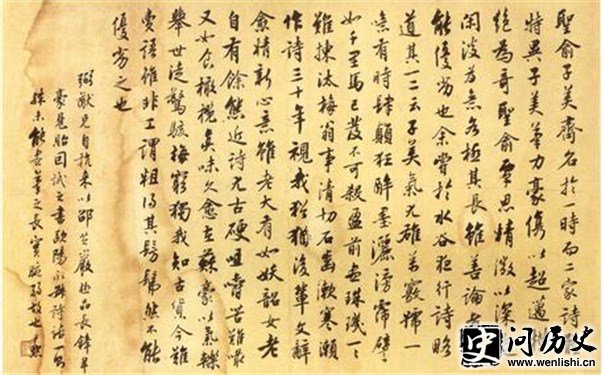 聖俞子美齊名於一時而二家詩
特異子美筆力豪雋以超邁
絕為奇聖俞覃思精微以深
閑淡為意各極其長雖善論
能優劣也余嘗於水谷夜行詩略
道其一二云子美氣尤雄萬竅號一
噫有時肆顛狂醉墨灑滂霈譬
如千里馬已發不可殺盈前盡珠璣一一
難揀汰梅翁事清切石齒漱寒瀨
作詩三十年視我猶後輩文辭
愈精新心意雖老大有如妖韶女老
自有餘態近詩尤古硬咀嚼苦難嘬
又如食橄欖真味久愈在蘇豪以氣轢
舉世徒驚駭梅窮獨我知古貨今難
賣語雖非工謂粗得其髣髴然不能
優劣之也
弼猷兄自揚來以邵芝巖品長鋒羊
毫見貽因試之書歐陽永叔詩話一則
殊未能盡筆之長實腕弱故也
史问历史
www.wenlishi.cn